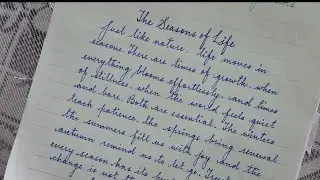 The Seasons of Life
Just like nature, life moves in
seasons. There are times of growth, when
everything blooms effortlessly, and times
of stillness, when the world feels quiet
and bare. Both are essential. The winters
teach patience, the springs bring renewal
the summers fill us with joy and the
autumn remind us to let go.
every season has its
change is not the